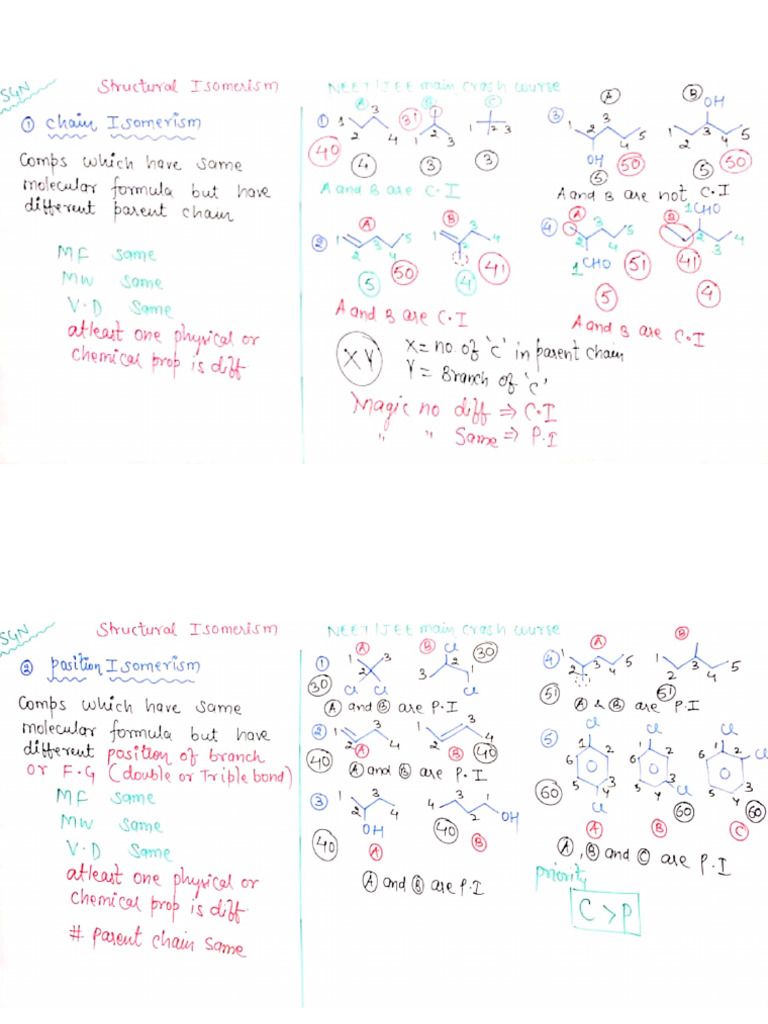 SGN
Structural Isomerism
NEET/JEE main crash course
① Chain Isomerism
Comps which have same
molecular formula but have
different parent chain
MF same
MW same
V.D same
atleast one physical or
chemical prop is diff
① A B C
1 2 3 4
31 1 2 3
1 2 3
40 4 3 3
A and B are C.I
② A B
1 2 3 4 5
1 2 3 4
5 50 4 41
A and B are C.I
③ A B
OH
1 2 3 4 5
1 2 3 4 5
OH
5 50 5 50
A and B are not C.I
④ A B
1CHO
3 4 5
2 3 4
1CHO 51 41
5 4
A and B are C.I
XY
X = no. of 'c' in parent chain
Y = Branch of 'c'
Magic no diff ⇒ C.I
" " Same ⇒ P.I
SGN
Structural Isomerism
NEET/JEE main crash course
② position Isomerism
Comps which have same
molecular formula but have
different position of branch
or F.G (double or Triple bond)
MF same
MW same
V.D same
atleast one physical or
chemical prop is diff
# parent chain same
① A B
1 2 3
Cl Cl
30
Cl
3 2 1
Cl
30
A and B are P.I
② 1 2 3 4
1 2 3 4
40 A B 40
A and B are P.I
③ 1 2 3 4
OH
4 3 2 1 OH
40 A 40 B
A and B are P.I
④ A B
1 2 3 4 5
1 2 3 4 5
51 51
A & B are P.I
⑤ Cl Cl Cl
1 2 3 4 5 6
Cl
1 2 3 4 5 6
Cl
1 2 3 4 5 6
Cl
60 60 60
A B C
A, B and C are P.I
priority
C > P